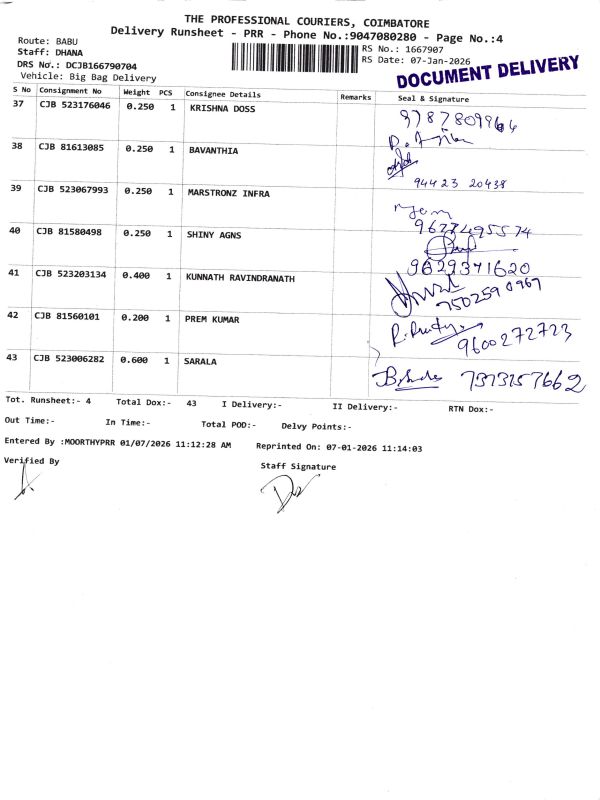 THE PROFESSIONAL COURIERS, COIMBATORE
Delivery Runsheet - PRR - Phone No.:9047080280 - Page No.:4
Route: BABU
RS No.: 1667907
Staff: DHANA
RS Date: 07-Jan-2026
DRS No.: DCJB166790704
DOCUMENT DELIVERY
Vehicle: Big Bag Delivery
S No Consignment No Weight PCS Consignee Details Remarks Seal & Signature
37 CJB 523176046 0.250 1 KRISHNA DOSS
38 CJB 81613085 0.250 1 BAVANTHIA
94423 20438
39 CJB 523067993 0.250 1 MARSTRONZ INFRA
9677495574
40 CJB 81580498 0.250 1 SHINY AGNS
9629371620
41 CJB 523203134 0.400 1 KUNNATH RAVINDRANATH
7502590967
42 CJB 81560101 0.200 1 PREM KUMAR
9600272723
43 CJB 523006282 0.600 1 SARALA
7373157662
Tot. Runsheet:- 4 Total Dox:- 43 I Delivery:- II Delivery:- RTN Dox:-
Out Time:- In Time:- Total POD:- Delvy Points:-
Entered By :MOORTHYPRR 01/07/2026 11:12:28 AM Reprinted On: 07-01-2026 11:14:03
Verified By
Staff Signature